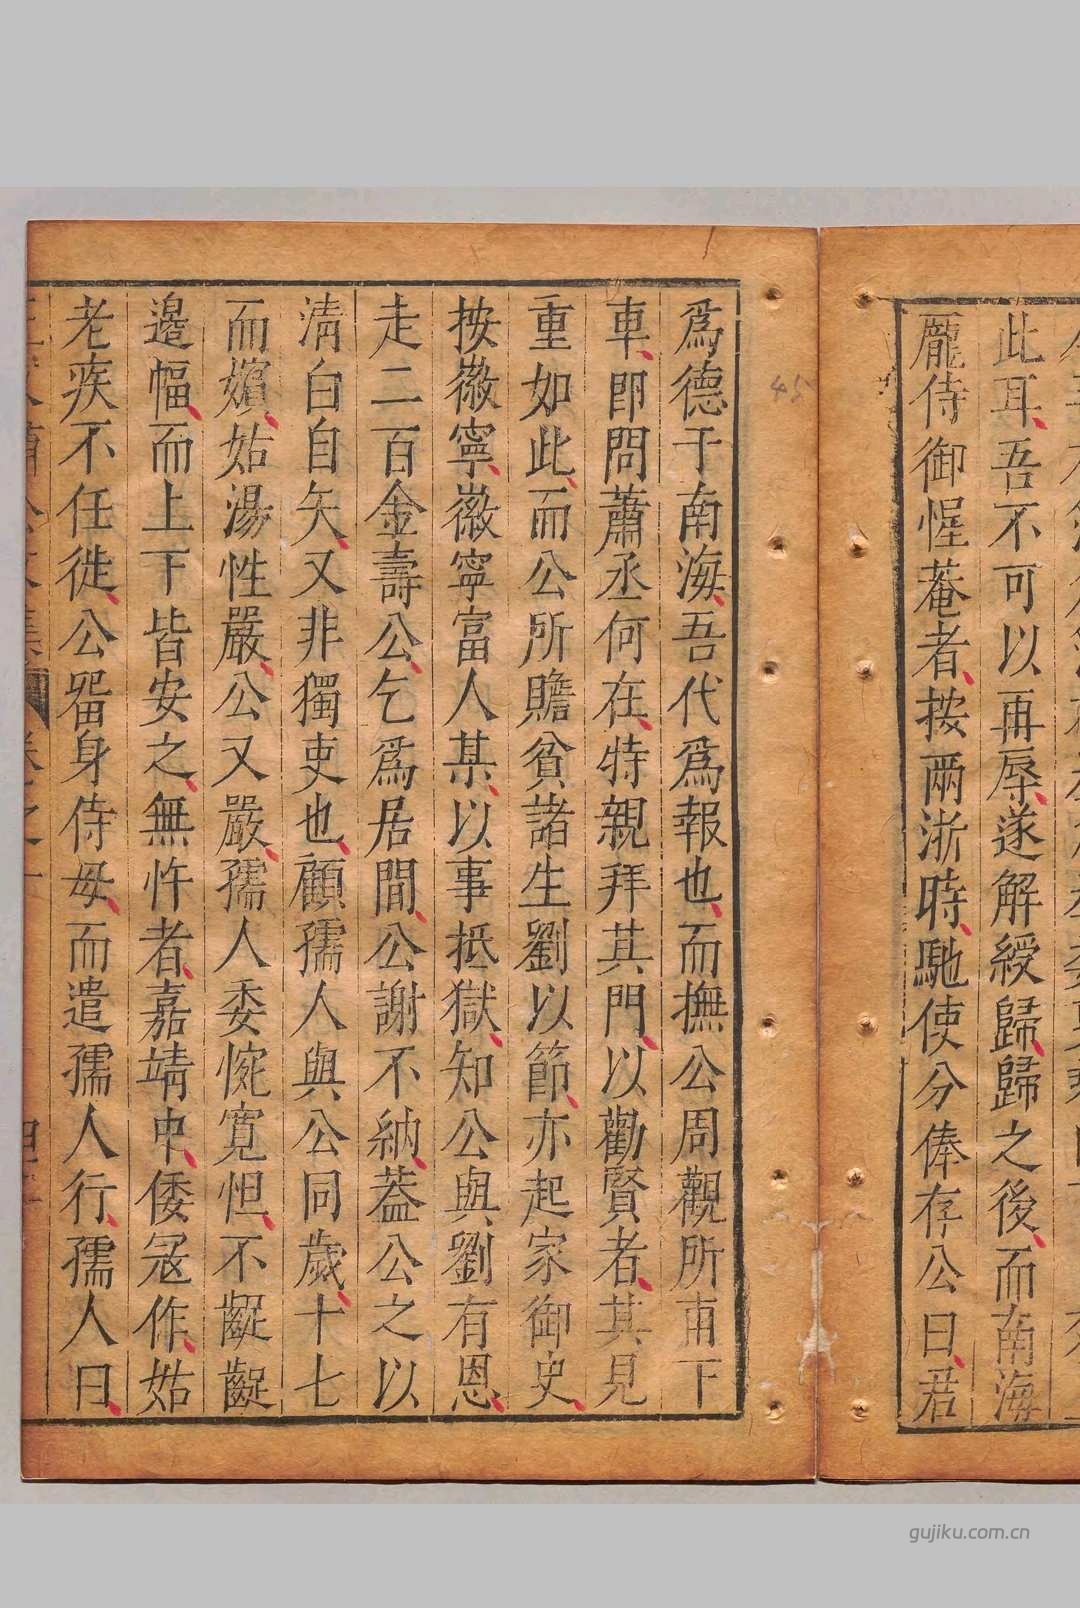 此耳吾不可以再辱遂解綬歸歸之後而南海
龐侍御惺菴者按兩浙時馳使分俸存公曰君
為德于南海吾代為報也而撫公周觀所甫下
車即問蕭丞何在特親拜其門以勸賢者其見
重如此而公所贍貧諸生劉以節亦起家御史
按徽寧徽寧富人某以事抵獄知公與劉有恩
走二百金壽公乞為居間公謝不納蓋公之以
清白自矢又非獨吏也顧孺人與公同歲十七
而嬪姑湯性嚴公又嚴孺人委惋寬怛不齪齪
邉幅而上下皆安之無忤者嘉靖中倭冦作姑
老疾不任徙公畱身侍母而遣孺人行孺人曰
45
gujiku.com.cn